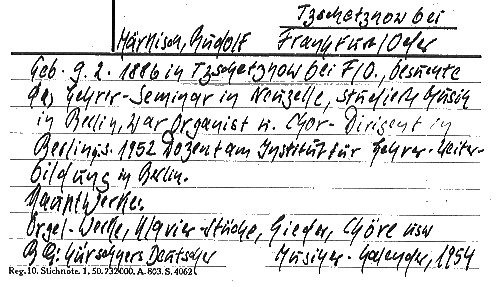 Tzschetznow bei
Härtisch, Rudolf Frankfurt/Oder
Geb. 9.2.1886 in Tzschetznow bei F/O., besuchte
das Lehrer-Seminar in Neuzelle, studierte Musik
in Berlin, war Organist u. Chor-Dirigent in
Berlin, s. 1952 Dozent am Institut für Lehrer-Weiter-
bildung in Berlin.
Hauptwerke:
Orgel-Werke, Klavier-Stücke, Lieder, Chöre usw
Kürschners Deutscher Musiker-Kalender, 1954
Reg. 10. Stichnote. 1, 50. 732000. A. 803. S. 4062